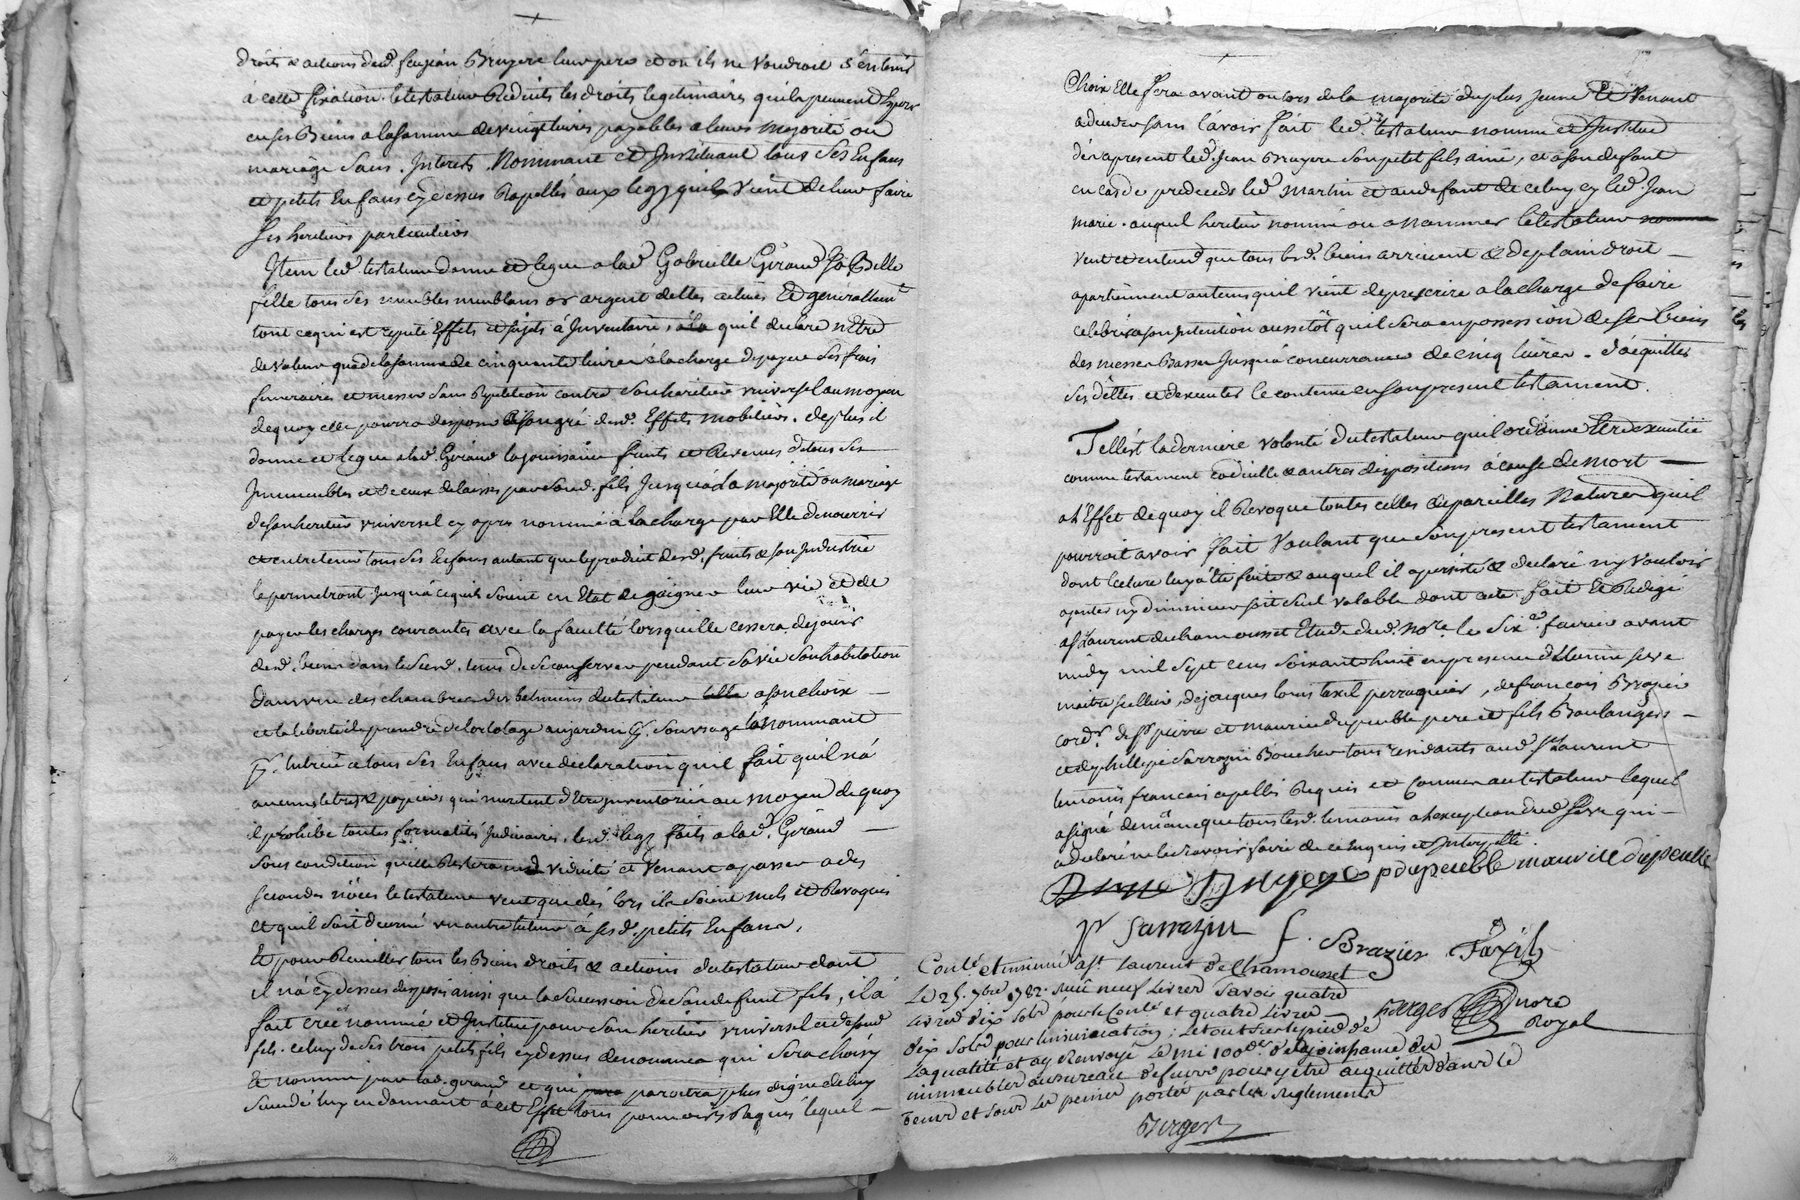 droits & actions dud. feu jean Bruyere leur pere et ou ils ne voudroit s'en tenir
à cette fixation. le testateur Reduits les droits legitimaires qu'ils peuvent Esperer
en ses Biens a la somme de vingt livres payables a leurs majorité ou
mariage sans Interets. Nommant et Instituant tous ses Enfans
et petits Enfans cy dessus Rapellés aux legs qu'il vient de leur faire
ses heritiers particuliers
Item led. testateur donne et legue a lad. Gabrielle Giraud sa Belle
fille tous ses meubles meublans or argent dettes actives Et generallemt
tout ce qui est reputé Effets et sujets à Inventaire, qu'il declare n'Etre
de valeur que de la somme de cinquante livres à la charge de payer ses frais
funeraires et messes sans Repetition contre son heritier universel au moyen
de quoy elle pourra disposer à son gré desd. Effets mobiliers. de plus il
donne et legue a lad. Giraud la jouissance fruits et Revenus de tous ses
Immeubles et de ceux delaissés par sond. fils Jusqu'à la majorité ou mariage
de son heritier universel cy apres nommé à la charge par Elle de nourrir
et entretenir tous ses Enfans autant que le produit desd. fruits & son Industrie
le permetront Jusqu'à ce qu'ils soient en Etat de gaigner leur vie et de
payer les charges courantes avec la faculté lorsqu'elle cessera de jouir
desd. biens dans le susd. tems de se conserver pendant sa vie son habitation
dans une des chambres des batimens du testateur a son choix
et la liberté de prendre de l'ortolage au jardin p. son usage la nommant
p. tutrice de tous ses Enfans avec declaration qu'il fait qu'il n'a
aucuns titres & papiers qui meritent d'Etre Inventoriés au moyen de quoy
il prohibe toutes formalités Judiciaires, lesd. legs faits a lad. Giraud
sous condition qu'elle Restera en viduité et venant a passer a des
secondes nôces le testateur veut que dés lors ils soient nuls et Revoqués
et qu'il soit decerné un autre tuteur à sesd. petits Enfans,
Et pour Recueillir tous les Biens droits & actions du testateur dont
il n'a cy dessus disposé ainsi que la succession de son defunt fils, il a
fait créé nommé et Institué pour son heritier universel et de sond
fils. celuy de ses trois petits fils cy dessus denommés qui sera choisy
Et nommé par lad. giraud et qui paroitra plus digne de luy
succeder luy en donnant à cet Effet tous pouvoirs Requis lequel
Choix Elle fera avant ou lors de la majorité du plus jeune Et venant
a deceder sans l'avoir fait led. testateur nomme et Institue
dés apresent led. Jean Bruyere son petit fils ainé, et a son defaut
en cas de predecés led. Martin et au defaut de celuy cy led. Jean
marie. auquel heritier nommé ou a Nommer le testateur
veut et entend que tous lesd. biens arrivent & de plain droit
apartiennent au tems qu'il vient de prescrire a la charge de faire
celebrer a son Intention aussitôt qu'il sera en possession de ses biens
des messes basses Jusqu'à concurrance de cinq livres. d'acquitter
ses dettes et d'executer le contenu en son present testament.
Tell'est la derniere volonté du testateur qu'il ordonne Etre executée
comme testament codicille & autres dispositions à cause de mort
a l'Effet de quoy il Revoque toutes celles de pareilles Natures qu'il
pourroit avoir fait voulant que son present testament
dont lecture luy a été faite & auquel il a persisté & declaré n'y vouloir
ajouter ny diminuer soit seul valable dont acte. fait Et Redigé
a St Laurent de chamousset Etude dud. Nore. le six e. fevrier avant
midy mil sept cens soixante huit en presence d'
maitre sellier, de jacques louis taxil perruquier, de francois Brazier
cordr. de Sr pierre et maurice dupeuble pere et fils Boulangers
et de phillipe Sarrazin Boucher tous residants aud. St Laurent
temoins francois apellés Requis et Connus au testateur lequel
a signé de même que tous lesd. temoins a l'exception dud. qui
a declaré ne le sçavoir faire de ce Enquis et Interpellé
Bruyere pdupeubble maurice dupeuble
pr Sarrazin f. Brazier Taxil
Conlé et insinué a St Laurent de Chamousset
Le 25. 7bre 1782. Reçû neuf Livres Savoir quatre
Livres dix Sols pour le Conlé et quatre Livres
dix Sols pour l'insinuation; Le tout sur le pied de
La qualité et ay Renvoyé Le mi 100e de la joüissance des
immeubles au bureau de pour y être acquitté dans le
tems et sous Les peines portés par les Reglements
Berger
Berger Nore
Royal